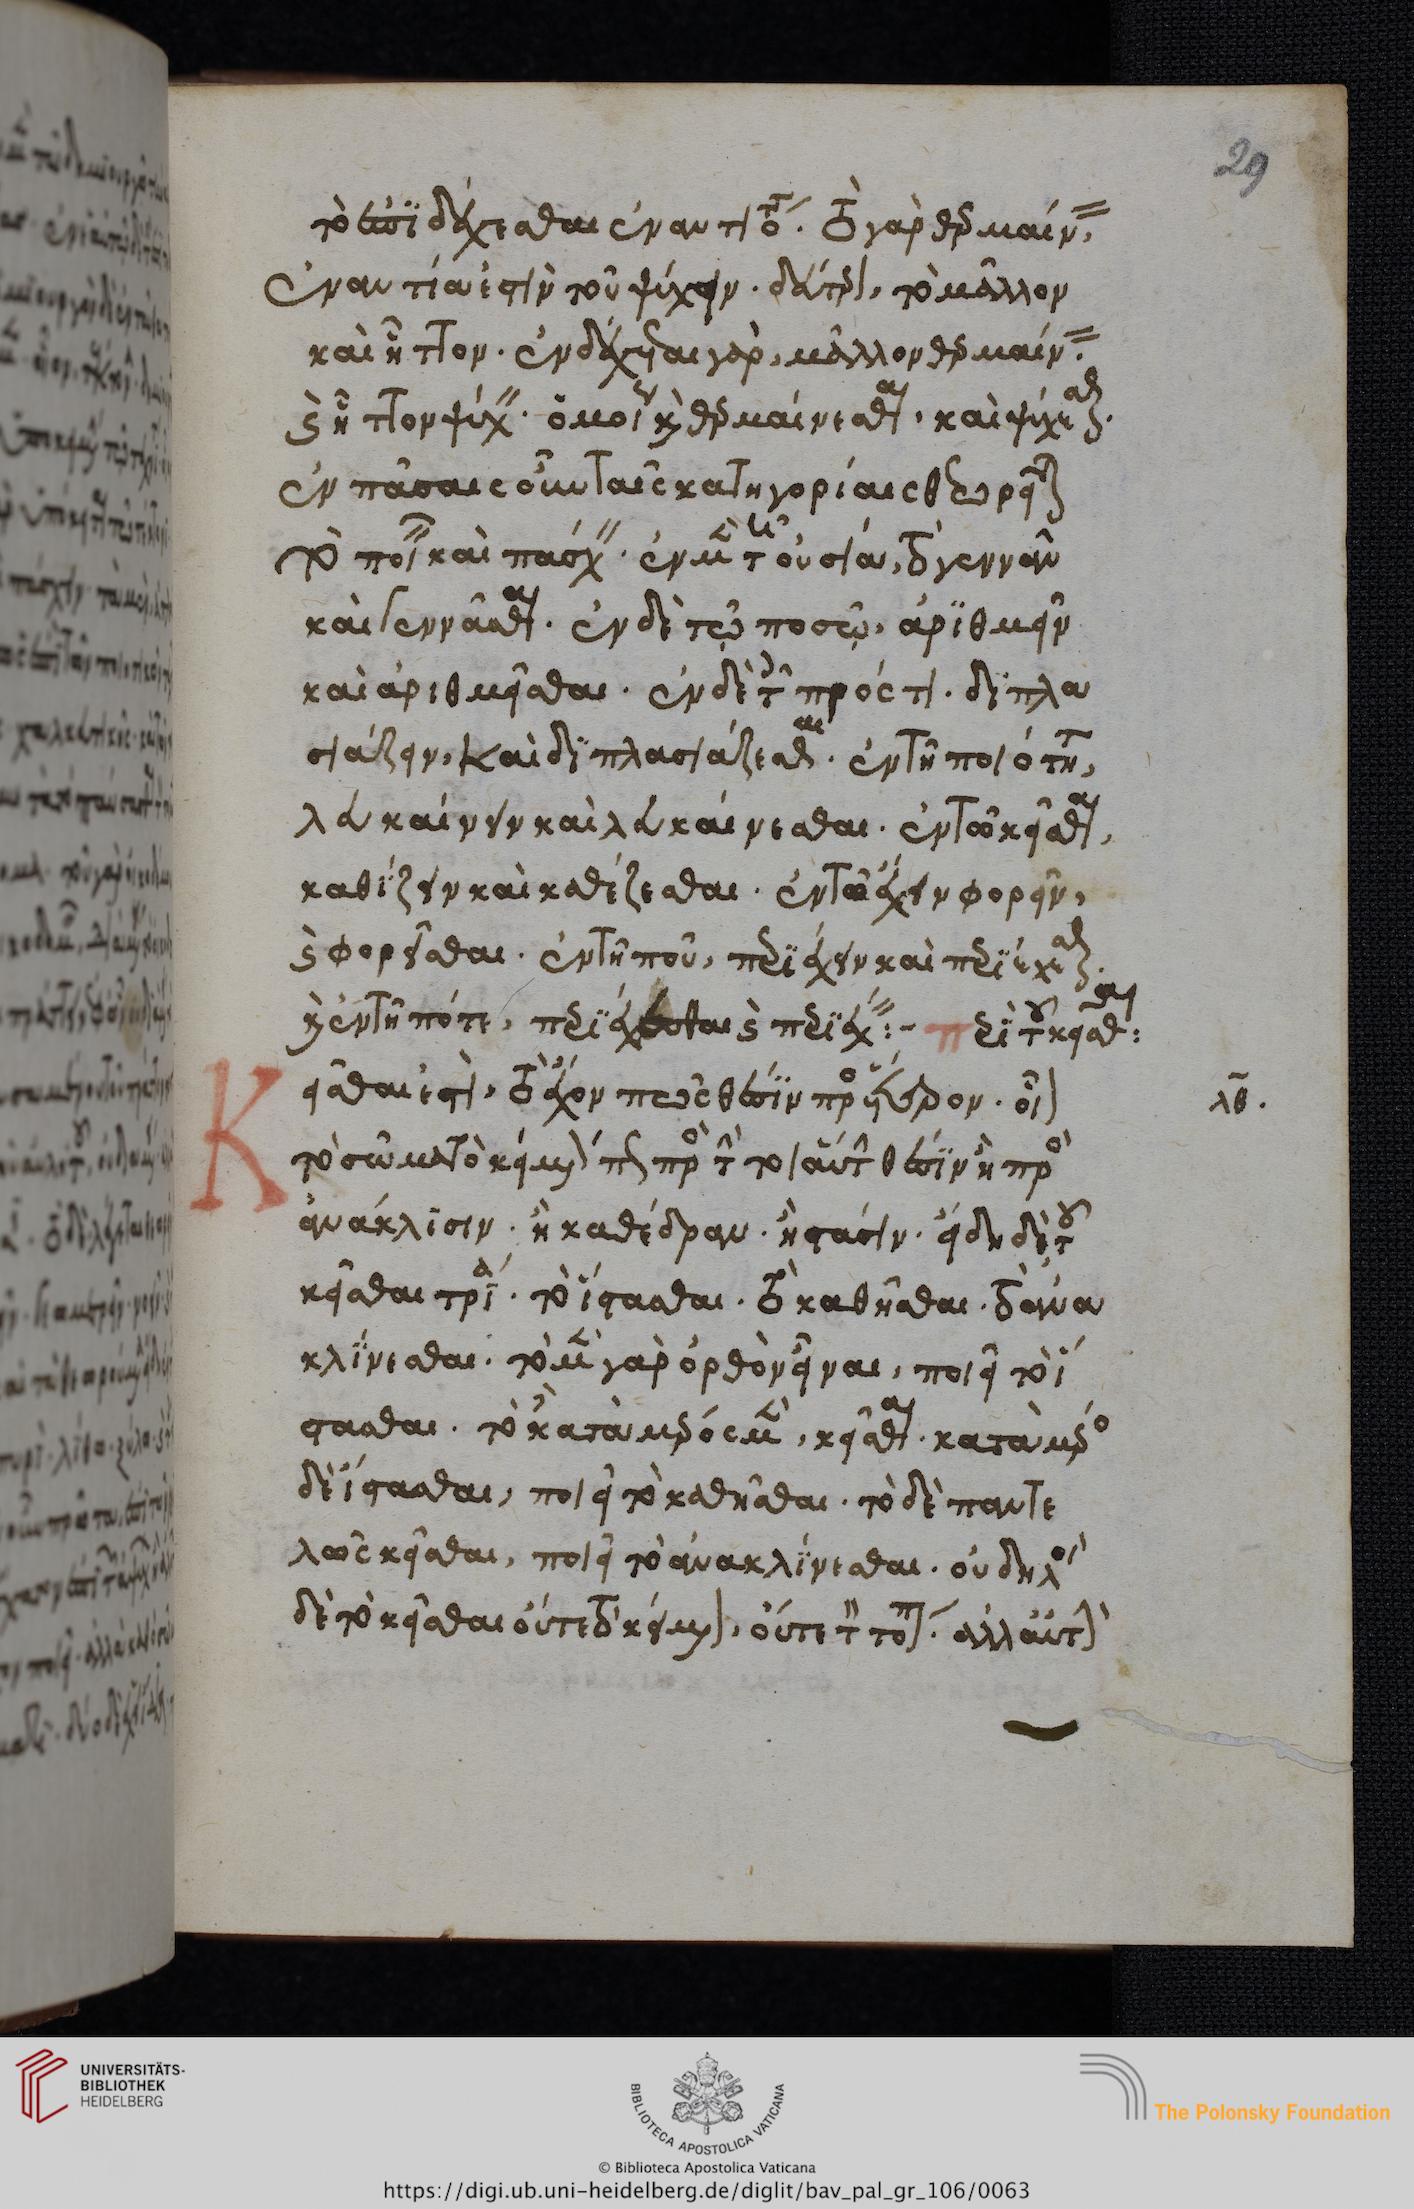 τὸ ἐπιδέχεσθαι ἐναντιότητα. τὸ γὰρ θερμαίνειν,
ἐναντίον ἐστὶν τοῦ ψύχειν. δεύτερον, τὸ μᾶλλον
καὶ ἧττον. ἐνδέχεται γὰρ, μᾶλλον θερμαίνειν.
καὶ ἧττον ψύχειν. ὁμοίως καὶ θερμαίνεσθαι, καὶ ψύχεσθαι.
ἐν πάσαις οὖν ταῖς κατηγορίαις θεωρεῖται
τὸ ποιεῖν καὶ πάσχειν. ἐν μὲν τῇ οὐσία, τὸ γεννᾶν
καὶ γεννᾶσθαι. ἐν δὲ τῷ ποσῷ, ἀρϊθμεῖν
καὶ ἀριθμεῖσθαι. ἐν δὲ τοῖς πρός τι. δϊπλα
σιάζειν, καὶ δϊπλασιάζεσθαι. ἐν τῆ ποιότητι,
λευκαίνειν καὶ λευκαίνεσθαι. ἐν τῶ κεῖσθαι,
καθίζειν καὶ καθέζεσθαι. ἐν τῶ ἔχειν φορεῖν,
καὶ φορεῖσθαι. ἐν τῆ ποῦ, περϊέχειν καὶ περϊέχεσθαι.
καὶ ἐν τῆ πότε, περϊέχεσθαι καὶ περϊέχειν:- περὶ τοῦ κεῖσθαι:
Κεῖσθαι ἐστὶ, τὸ ἔχον πως θέσϊν πρὸς ἕτερον. οἷον
τὸ σῶμα τὸ κείμενόν πως πρὸς τὸ τοιαύτην θέσϊν ἢ πρὸς
ἀνάκλισιν. ἢ καθέδραν. ἢ στάσιν. εἴδη δὲ τοῦ
κεῖσθαι τρία. τὸ ἵστασθαι. τὸ καθῆσθαι. τὸ ἀνα
κλίνεσθαι. τὸ μὲν γὰρ ὀρθὸν εἶναι, ποιεῖ τὸ ἵ
στασθαι. τὸ κατὰ μέρος μὲν, κεῖσθαι. κατὰ μέρος
δὲ ἵστασθαι, ποιεῖ τὸ καθῆσθαι. τὸ δὲ παντε
λῶς κεῖσθαι, ποιεῖ τὸ ἀνακλίνεσθαι. οὐ δηλοῖ
δὲ τὸ κεῖσθαι οὔτε τὸ κείμενον, οὔτε τὸν τόπον. ἀλλὰ αὐτὴν
λβ.
29
UNIVERSITÄTS-
BIBLIOTHEK
HEIDELBERG
BIBLIOTECA APOSTOLICA VATICANA
The Polonsky Foundation
© Biblioteca Apostolica Vaticana
https://digi.ub.uni-heidelberg.de/diglit/bav_pal_gr_106/0063